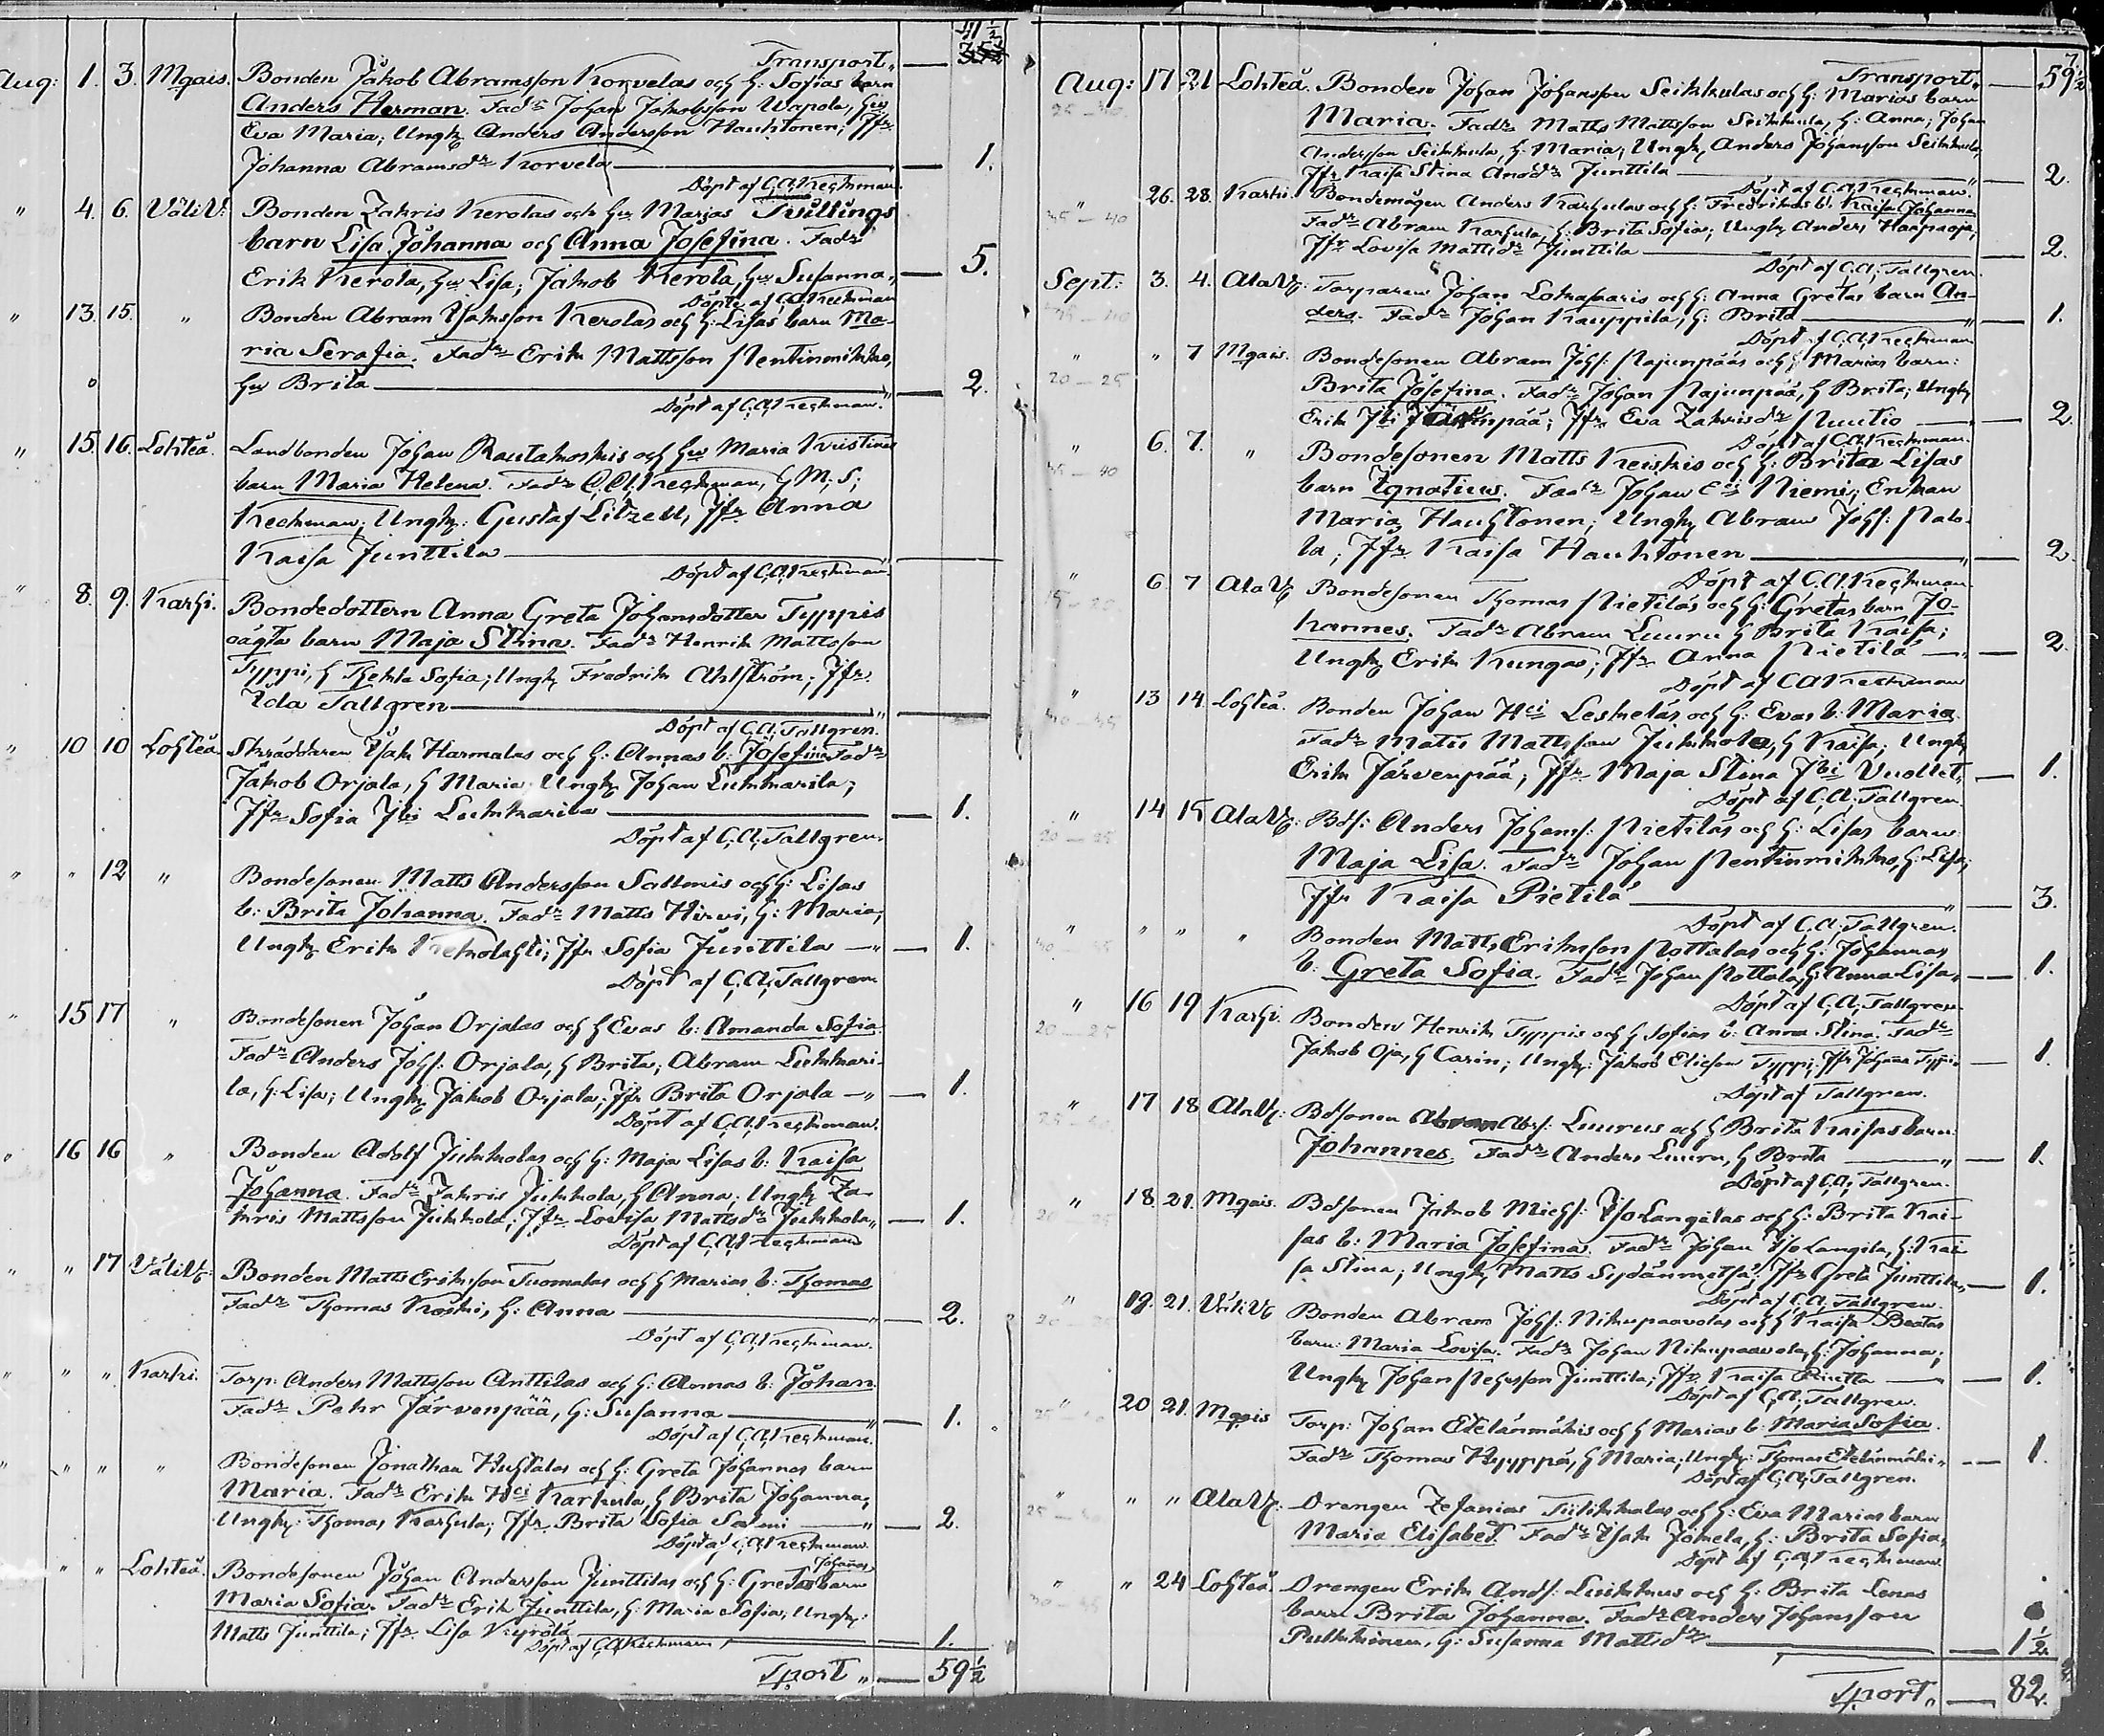 41 1/2
Transport „ — 35 1/2
Aug: 1. 3. Mgais. Bonden Jakob Abramsson Korvelas och h: Sofias barn
Anders Herman. Fadr Johan Jakobsson Wapola, hu
Eva Maria; Ungk Anders Andersson Hauhtonen; Jfr
Johanna Abramsdr Korvela — 1.
Döpt af C.A. Keckman.
" 4. 6. Väli V: Bonden Zakris Kerolas och hu Marias Tvillings
barn Lisa Johanna och Anna Josefina. Fadr
Erik Kerola, hu Lisa; Jakob Kerola, hu Susanna „ — 5.
Döpte af C.A. Keckman
" 13. 15. " Bonden Abram Isaksson Kerolas och h: Lisas barn Ma-
ria Serafia. Fadr Erik Mattsson Pentinmikko,
hu Brita — 2.
Döpt af C.A. Keckman.
" 15. 16. Lohteå. Landbonden Johan Rautakoskis och hu Maria Kristinas
barn Maria Helena. Fadr C.A. Keckman, h M. S;
Keckman; Ungk: Gustaf Litzell, Jfr Anna
Kaisa Junttila —
Döpt af C.A. Keckman.
" 8. 9. Karhi. Bondedottern Anna Greta Johansdotter Typpis
oägta barn Maja Stina. Fadr Henrik Mattsson
Typpi, h Thekla Sofia; Ungk Fredrik Ahlström; Jfr
Ida Tallgren —
Döpt af C.A. Tallgren.
" 10 10 Lohteå Skräddaren Isak Harmalas och h: Annas b: Josefina Fadr
Jakob Orjala, h Maria; Ungk Johan Lukkarila;
Jfr Sofia Jbi Lukkarila — 1.
Döpt af C.A. Tallgren.
" " 12 " Bondesonen Matts Andersson Salmis och h: Lisas
b: Brita Johanna. Fadr Matts Hirvi, h: Maria;
Ungk Erik Kekolahti; Jfr Sofia Junttila — 1.
Döpt af C.A. Tallgren
" 15 17 " Bondesonen Johan Orjalas och h Evas b: Amanda Sofia.
Fadr Anders Johs: Orjala, h Brita; Abram Lukkari-
la, h: Lisa; Ungk Jakob Orjala; Jfr Brita Orjala — 1.
Döpt af C.A. Keckman.
" 16 16 " Bonden Adolf Jukkolas och h: Maja Lisas b: Kaisa
Johanna. Fadr Zakris Jukkola, h Anna; Ungk Za-
kris Mattsson Jukkola; Jfr Lovisa Mattsdr Jukkola „ — 1.
Döpt af C.A. Keckman
" " 17 Väli V: Bonden Matts Eriksson Tuomalas och h Marias b: Thomas
Fadr Thomas Koski, h: Anna — 2.
Döpt af C.A. Keckman.
" " " Karhi. Torp: Anders Mattsson Anttilas och h: Annas b: Johan.
Fadr Pehr Järvenpää, h: Susanna — 1.
Döpt af C.A. Keckman.
" " " " Bondesonen Jonathan Huhtalas och h: Greta Johannas barn
Maria. Fadr Erik Hci Karhula, h Brita Johanna;
Ungk: Thomas Karhula; Jfr Brita Sofia Salmi — 2.
Döpt af C.A. Keckman.
" " Lohteå. Bondesonen Johan Andersson Junttilas och h: Greta Johannas barn
Maria Sofia. Fadr Erik Junttila, h: Maria Sofia, Ungk:
Matts Junttila; Jfr Lisa Vyrölä — 1.
Döpt af C.A. Keckman
Tport „ — 59 1/2
7.
Transport „ — 59 1/2
Aug: 17 21 Lohteå. Bonden Johan Johansson Seikkulas och h: Marias barn
25 - 30
Maria. Fadr Matts Mattsson Seikkula, h: Anna; Johan
Andersson Seikkula, h: Maria; Ungk, Anders Johansson Seikkula,
Jfr Kaisa Stina Andr Junttila — 2.
Döpt af C.A. Keckman.
" 26. 28. Karhi. Bondemågen Anders Karhulas och h: Fredrikas b: Kaisa Johanna
35 - 40
Fadr Abram Karhula, h: Brita Sofia; Ungk Anders Haapaoja;
Jfr Lovisa Mattsdr Junttila — 2.
Döpt af C.A. Tallgren.
Sept: 3. 4. Ala V: Torparen Johan Lokasaaris och h: Anna Gretas barn An-
ders. Fadr Johan Kauppila, h: Brita — 1.
Döpt af C.A. Keckman
" " 7 Mgais. Bondesonen Abram Johs: Pajunpääs och h Marias barn:
20 - 25
Brita Josefina. Fadr Johan Pajunpää, h Brita; Ungk
Erik Jbi Järvenpää; Jfr Eva Zakrisdr Ruutio — 2.
Döpt af C.A. Keckman.
" 6. 7. " Bondesonen Matts Keiskis och h: Brita Lisas
35 - 40
barn Ignatius. Fadr Johan Eci Niemi; Enkan
Maria Hauhtonen; Ungk Abram Johs: Palo-
la; Jfr Kaisa Hauhtonen — 2.
Döpt af C.A. Keckman
" 6 7 Ala V: Bondesonen Thomas Pietiläs och h: Gretas barn Jo-
hannes. Fadr Abram Luuru h Brita Kaisa;
Ungk Erik Kungas; Jfr Anna Pietilä — 2.
Döpt af C A Keckman
" 13 14 Lohteå. Bonden Johan Hci Leskeläs och h: Evas b: Maria.
Fadr Matts Mattsson Jukkola, h Kaisa; Ungk
Erik Järvenpää; Jfr Maja Stina Jbi Vuollet „ — 1.
Döpt af C.A. Tallgren.
" 14 15 Ala V: Bds: Anders Johans: Pietiläs och h: Lisas barn:
20 - 25
Maja Lisa. Fadr Johan Pentinmikko, h: Lisa;
Jfr Kaisa Pietilä — 3.
Döpt af C.A. Tallgren.
" " " " Bonden Matts Eriksson Pottalas och h: Johannas
b: Greta Sofia. Fadr Johan Pottala, h: Anna Lisa „ — 1.
Döpt af C.A. Tallgren
" 16 19 Karhi. Bonden Henrik Typpis och h Sofias b: Anna Stina. Fadr
20 - 25
Jakob Oja, h Carin; Ungk: Jakob Elieson Typpi; Jfr Johanna Typpi „ — 1.
Döpt af Tallgren.
" 17 18 Ala V: Bdsonen Abram Abrs: Luurus och h Brita Kaisas barn:
Johannes. Fadr Anders Luuru, h Brita — 1.
Döpt af C.A. Tallgren.
" 18. 21. Mgais. Bdsonen Jakob Michs: Iso Langilas och h: Brita Kai-
sas b: Maria Josefina. Fadr Johan Iso Langila, h: Kai
sa Stina; Ungk Matts Sydänmetsä; Jfr Greta Junttila „ — 1.
Döpt af C.A. Tallgren.
" 19. 21. Väli V: Bonden Abram Johs: Nikupaavolas och h Kaisa Beatas
barn: Maria Lovisa. Fadr Johan Nikupaavola, h: Johanna;
Ungk Johan Pehrsson Junttila; Jfr Kaisa — 1.
Döpt af C.A. Tallgren.
" 20 21. Mgais Torp: Johan Etelänmäkis och h Marias b: Maria Sofia.
Fadr Thomas Hyyppä, h Maria; Ungk: Thomas Etelänmäki „ — 1.
Döpt af C.A. Tallgren.
" " " Ala V: Drengen Zefanias Tiitikkalas och h: Eva Marias barn
Maria Elisabet. Fadr Isak Jokela, h: Brita Sofia;
Döpt af C.A. Keckman.
" " 24 Lohteå. Drengen Erik Ands: Luikkus och h: Brita Lenas
barn Brita Johanna. Fadr Anders Johansson
Pulkkinen, h: Susanna Mattsdr — 1 1/2
Tport „ — 82.